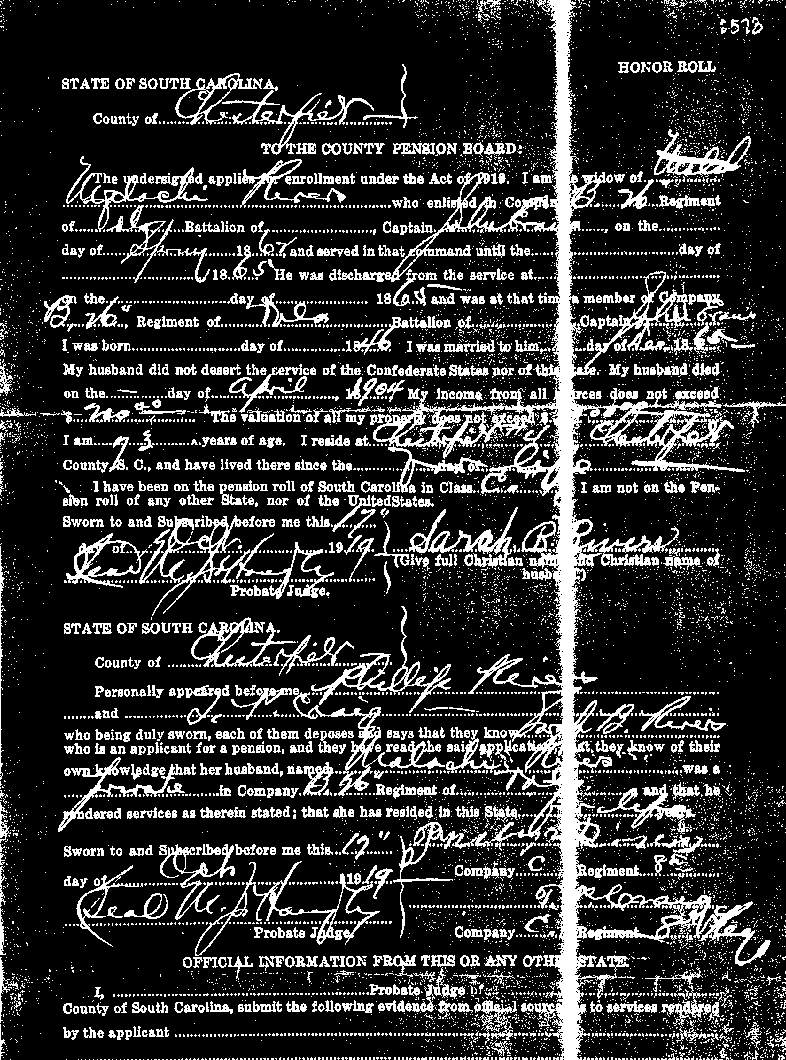 6573
HONOR ROLL
STATE OF SOUTH CAROLINA,
County of Chesterfield
TO THE COUNTY PENSION BOARD:
The undersigned applies for enrollment under the Act of 1919. I am the widow of
Malachi Rivers who enlisted in Company B. 26" Regiment
of Battalion of, Captain John on the
day of 186 and served in that command until the day of
1865 He was discharged from the service at
on the day of 1865 and was at that time a member of Company
B. 26" Regiment of Battalion of Captain John
I was born day of 1846 I was married to him day of 186
My husband did not desert the service of the Confederate States nor of this State. My husband died
on the — day of April, 1904 My income from all sources does not exceed
$ The valuation of all my property does not exceed $
I am 73 years of age. I reside at Chesterfield in Chesterfield
County, S. C., and have lived there since the day of life
I have been on the pension roll of South Carolina in Class C I am not on the Pen-
sion roll of any other State, nor of the UnitedStates.
Sworn to and Subscribed before me this 17"
day of Oct. 1919 Sarah B. Rivers
(Give full Christian name and Christian name of
husband.)
Seal
Probate Judge.
STATE OF SOUTH CAROLINA,
County of Chesterfield
Personally appeared before me Phillip Rivers
and T. Craig
who being duly sworn, each of them deposes and says that they know Sarah B. Rivers
who is an applicant for a pension, and they have read the said application, that they know of their
own knowledge that her husband, named Malachi Rivers was a
private in Company B. 26" Regiment of and that he
rendered services as therein stated; that she has resided in this State for life years.
Sworn to and Subscribed before me this 17"
day of Oct 1919 Company C Regiment 8
Seal
Probate Judge. Company C. Regiment 8 Reg
OFFICIAL INFORMATION FROM THIS OR ANY OTHER STATE
I, Probate Judge of
County of South Carolina, submit the following evidence from official sources as to services rendered
by the applicant